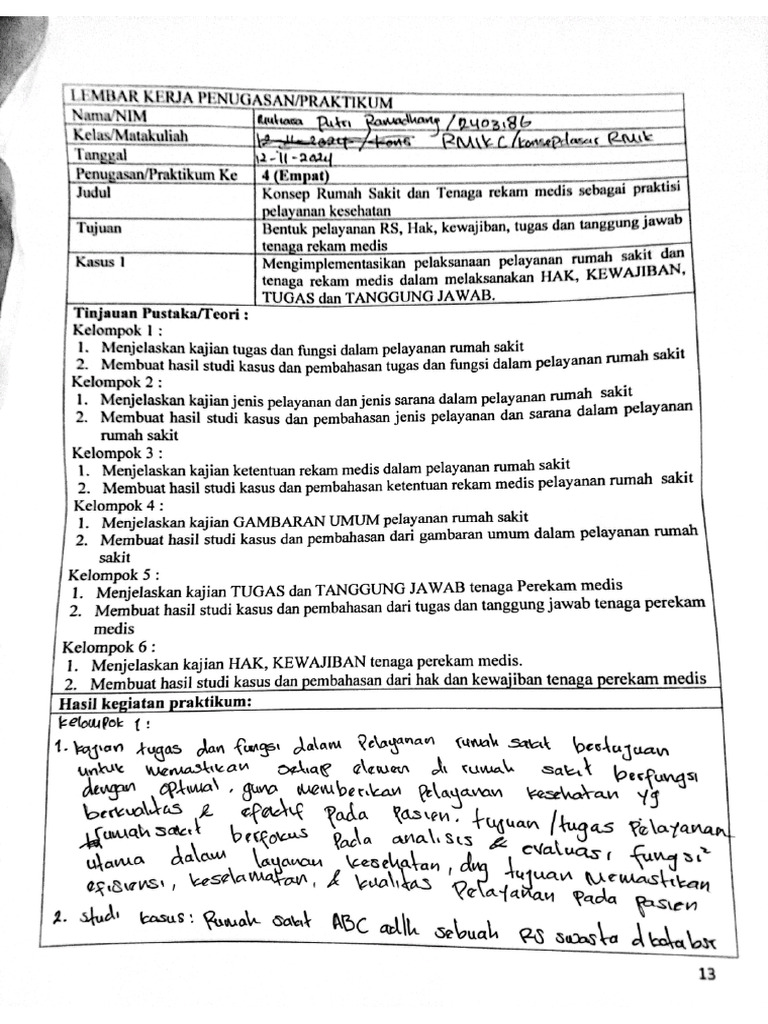 LEMBAR KERJA PENUGASAN/PRAKTIKUM
Nama/NIM Putri Ramadhang/2403186
Kelas/Matakuliah 12-11-2024/Kons RMIK C/konsep dasar RMIK
Tanggal 12-11-2024
Penugasan/Praktikum Ke 4 (Empat)
Judul Konsep Rumah Sakit dan Tenaga rekam medis sebagai praktisi
pelayanan kesehatan
Tujuan Bentuk pelayanan RS, Hak, kewajiban, tugas dan tanggung jawab
tenaga rekam medis
Kasus 1 Mengimplementasikan pelaksanaan pelayanan rumah sakit dan
tenaga rekam medis dalam melaksanakan HAK, KEWAJIBAN,
TUGAS dan TANGGUNG JAWAB.
Tinjauan Pustaka/Teori :
Kelompok 1 :
1. Menjelaskan kajian tugas dan fungsi dalam pelayanan rumah sakit
2. Membuat hasil studi kasus dan pembahasan tugas dan fungsi dalam pelayanan rumah sakit
Kelompok 2 :
1. Menjelaskan kajian jenis pelayanan dan jenis sarana dalam pelayanan rumah sakit
2. Membuat hasil studi kasus dan pembahasan jenis pelayanan dan sarana dalam pelayanan
rumah sakit
Kelompok 3 :
1. Menjelaskan kajian ketentuan rekam medis dalam pelayanan rumah sakit
2. Membuat hasil studi kasus dan pembahasan ketentuan rekam medis pelayanan rumah sakit
Kelompok 4 :
1. Menjelaskan kajian GAMBARAN UMUM pelayanan rumah sakit
2. Membuat hasil studi kasus dan pembahasan dari gambaran umum dalam pelayanan rumah
sakit
Kelompok 5 :
1. Menjelaskan kajian TUGAS dan TANGGUNG JAWAB tenaga Perekam medis
2. Membuat hasil studi kasus dan pembahasan dari tugas dan tanggung jawab tenaga perekam
medis
Kelompok 6 :
1. Menjelaskan kajian HAK, KEWAJIBAN tenaga perekam medis.
2. Membuat hasil studi kasus dan pembahasan dari hak dan kewajiban tenaga perekam medis
Hasil kegiatan praktikum:
Kelompok 1:
1. kajian tugas dan fungsi dalam Pelayanan rumah sakit bertujuan
untuk memastikan setiap elemen di rumah sakit berfungsi
dengan optimal, guna memberikan Pelayanan kesehatan yg
berkualitas & efektif pada pasien. tujuan/tugas Pelayanan
rumah sakit berfokus pada analisis & evaluasi fungsi²
utama dalam layanan kesehatan, dng tujuan memastikan
efisiensi, keselamatan, & kualitas Pelayanan pada pasien
2. studi kasus: Rumah sakit ABC adlh sebuah RS swasta dkota bsr
13